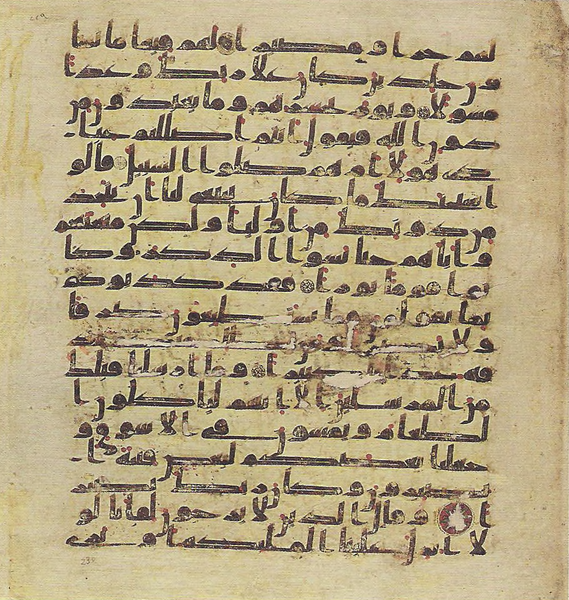 لهم جزا ومصيرا لهم فيها ما يشا
ون خلدين كان على ربك وعدا
مسولا ويوم يحشرهم وما يعبدون من
دون الله فيقول اانتم اضللتم عبا
دي هولا ام هم ضلوا السبيل قالو
ا سبحنك ما كان ينبغي لنا ان نتخذ
من دونك من اوليا ولكن متعتهم
واباهم حتى نسوا الذكر وكا
نوا قوما بورا فقد كذبوكم
بما تقولون فما تستطيعون صرفا
ولا نصرا ومن يظلم منكم نذ
قه عذابا كبيرا وما ارسلنا قبلك
من المرسلين الا انهم لياكلون ا
لطعام ويمشون في الاسوق و
جعلنا بعضكم لبعض فتنة ا
تصبرون وكان ربك بصير
ا وقال الذين لا يرجون لقانا لو
لا انزل علينا الملئكة او نرى